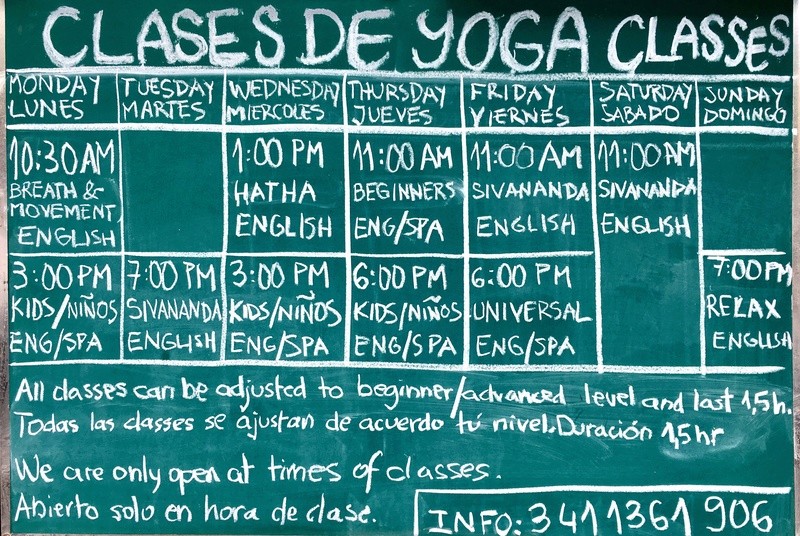 CLASES DE YOGA CLASSES
MONDAY TUESDAY WEDNESDAY THURSDAY FRIDAY SATURDAY SUNDAY
LUNES MARTES MIERCOLES JUEVES VIERNES SABADO DOMINGO
10:30 AM 1:00 PM 11:00 AM 11:00 AM 11:00 AM
BREATH & HATHA BEGINNERS SIVANANDA SIVANANDA
MOVEMENT,
ENGLISH ENGLISH ENG/SPA ENGLISH ENGLISH
3:00 PM 7:00 PM 3:00 PM 6:00 PM 6:00 PM 7:00 PM
KIDS/NIÑOS SIVANANDA KIDS/NIÑOS KIDS/NIÑOS UNIVERSAL RELAX
ENG/SPA ENGLISH ENG/SPA ENG/SPA ENG/SPA ENGLISH
All classes can be adjusted to beginner/advanced level and last 1,5h.
Todas las classes se ajustan de acuerdo tú nivel. Duración 1,5 hr
We are only open at times of classes.
Abierto solo en hora de clase.
INFO: 341 1361 906